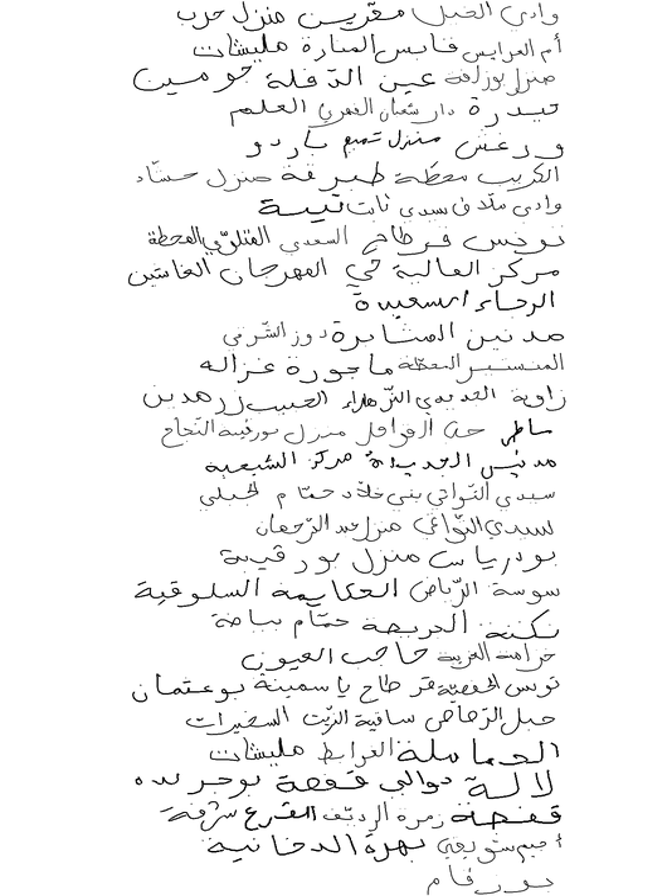 وادي الخيل مڨرين منزل حرب
أم العرايس قابس المنارة مليشات
منزل بوزلفة عين الدفلة جومين
تيدرة دار شعبان الفهري العلم
ورغش منزل تميم باردو
الكريب محطّة طبرقة منزل حشّاد
وادي ملاڨ سيدي ثابت تيبة
تونس قرطاج السعدي المتلوّي المحطة
مركز العالية حي المهرجان
الرخاء السعيدة
مدنين المثابرة دوز الشرقي
المنستير المحطّة ماجورة غزالة
زاوية الجديدي الزّهراء الحبيب
ساطر حي منزل بورقيبة النّجاح
الجديدة مركز الشبيبة
سيدي التّواتي بني خلاّد حمّام الجبلي
سيدي التّواتي منزل عبد الرّحمان
بودرياس منزل بورقيبة
سوسة الرّياض العكايمة السلوقية
تكتنة الدريجة حمّام بياضة
خزامة الغربية حاجب العيون
تونس الحفصيّة قرطاج ياسمينة بوعثمان
جبل الرّصاص ساقية الزّيت السخيرات
الحمامة الغرابط مليشات
لالة دوالي قفصة بوجربدة
قفصة زمرة الرديّف القرع شرفة
أجيم ستو يعيي بهرة الدخانية
بورقام